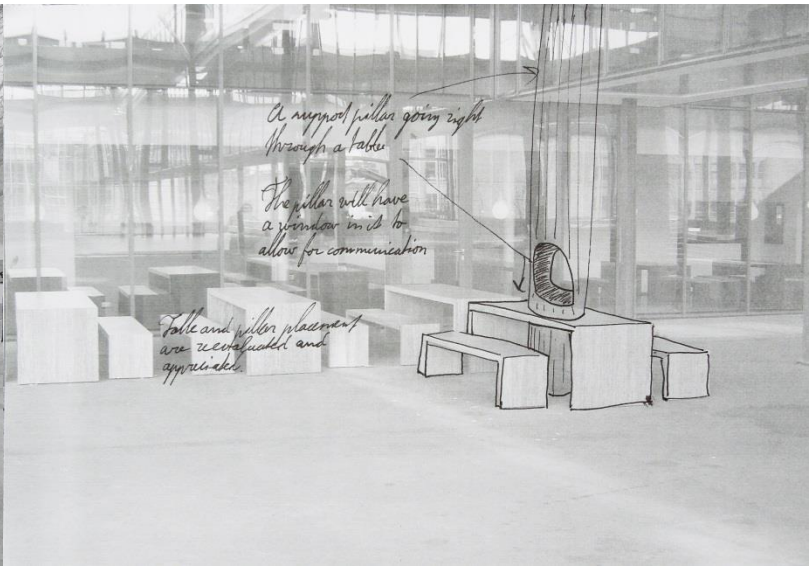 A support pillar going right
through a table
The pillar will have
a window in it to
allow for communication
Table and pillar placement
are reevaluated and
appreciated.